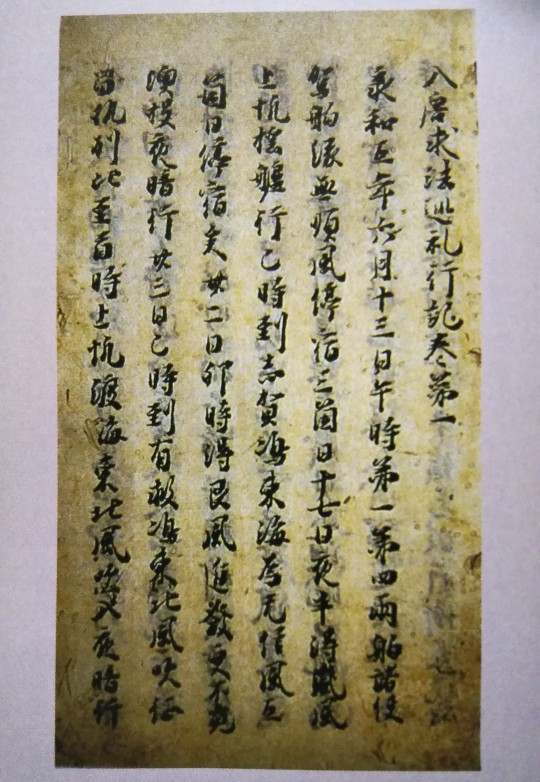 入唐求法巡礼行記巻第一
承和五年六月十三日午時第一第四両舶諸使
駕舶縁無順風停宿三箇日十七日夜半得嵐風
上帆揺艫行巳時到志賀嶋東海為无信風五
箇日停宿矣廿二日卯時得艮風進発更不覓
澳投夜暗行廿三日巳時到有救嶋東北風吹征
留執別比至酉時上帆渡海東北風吹入夜暗行